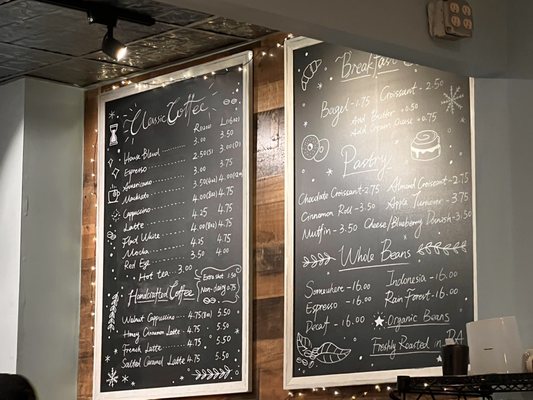 Classic Coffee
Round
House Blend 3.00 3.50
Espresso 2.50(S) 3.00(D)
Americano 3.50 4.00
Macchiato 3.75
Cappuccino 4.00 4.75
Latte 4.25 4.75
Flat White 4.00
Mocha 4.25 4.75
Red Eye 4.25 4.75
Hot tea 3.00
Extra shot 1.50
Non-dairy 0.75
Handcrafted Coffee
Walnut Cappuccino 4.75 5.50
Honey Cinnamon Latte 4.75 5.50
French Latte 4.75 5.50
Salted Caramel Latte 4.75 5.50
Breakfast
Bagel -1.75 Croissant -2.50
Add Butter +0.50
Add Cream Cheese +0.75
Pastry
Chocolate Croissant -2.75 Almond Croissant -2.75
Cinnamon Roll -3.50 Apple Turnover -3.75
Muffin -3.50 Cheese/Blueberry Danish -3.50
Whole Beans
-16.00 Indonesia -16.00
Espresso -16.00 Rain Forest -16.00
Decaf -16.00 Organic Beans
Freshly Roasted in